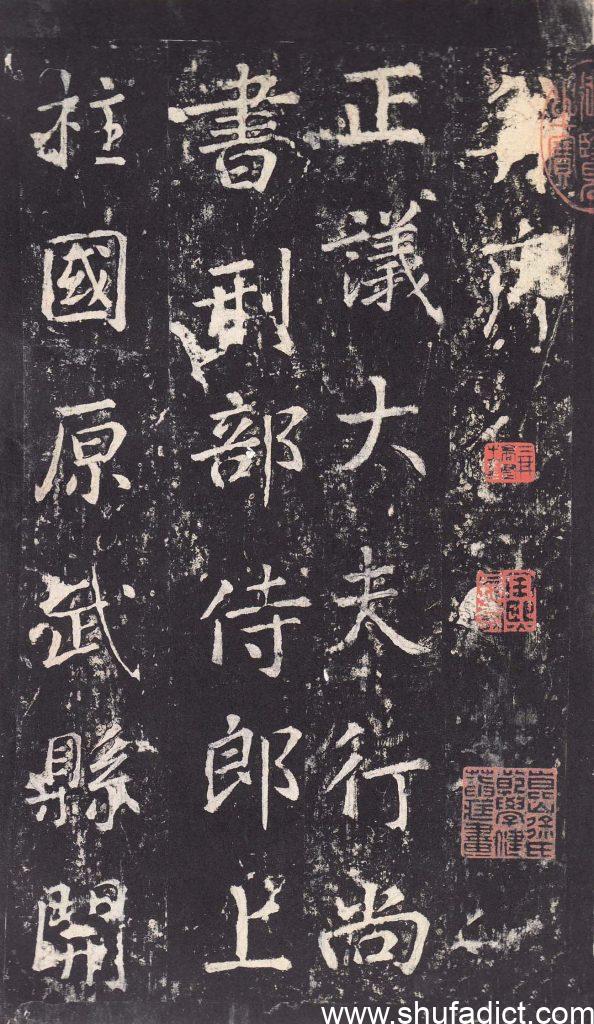 正議大夫行尚
書刑部侍郎上
柱國原武縣開
www.shufadict.com